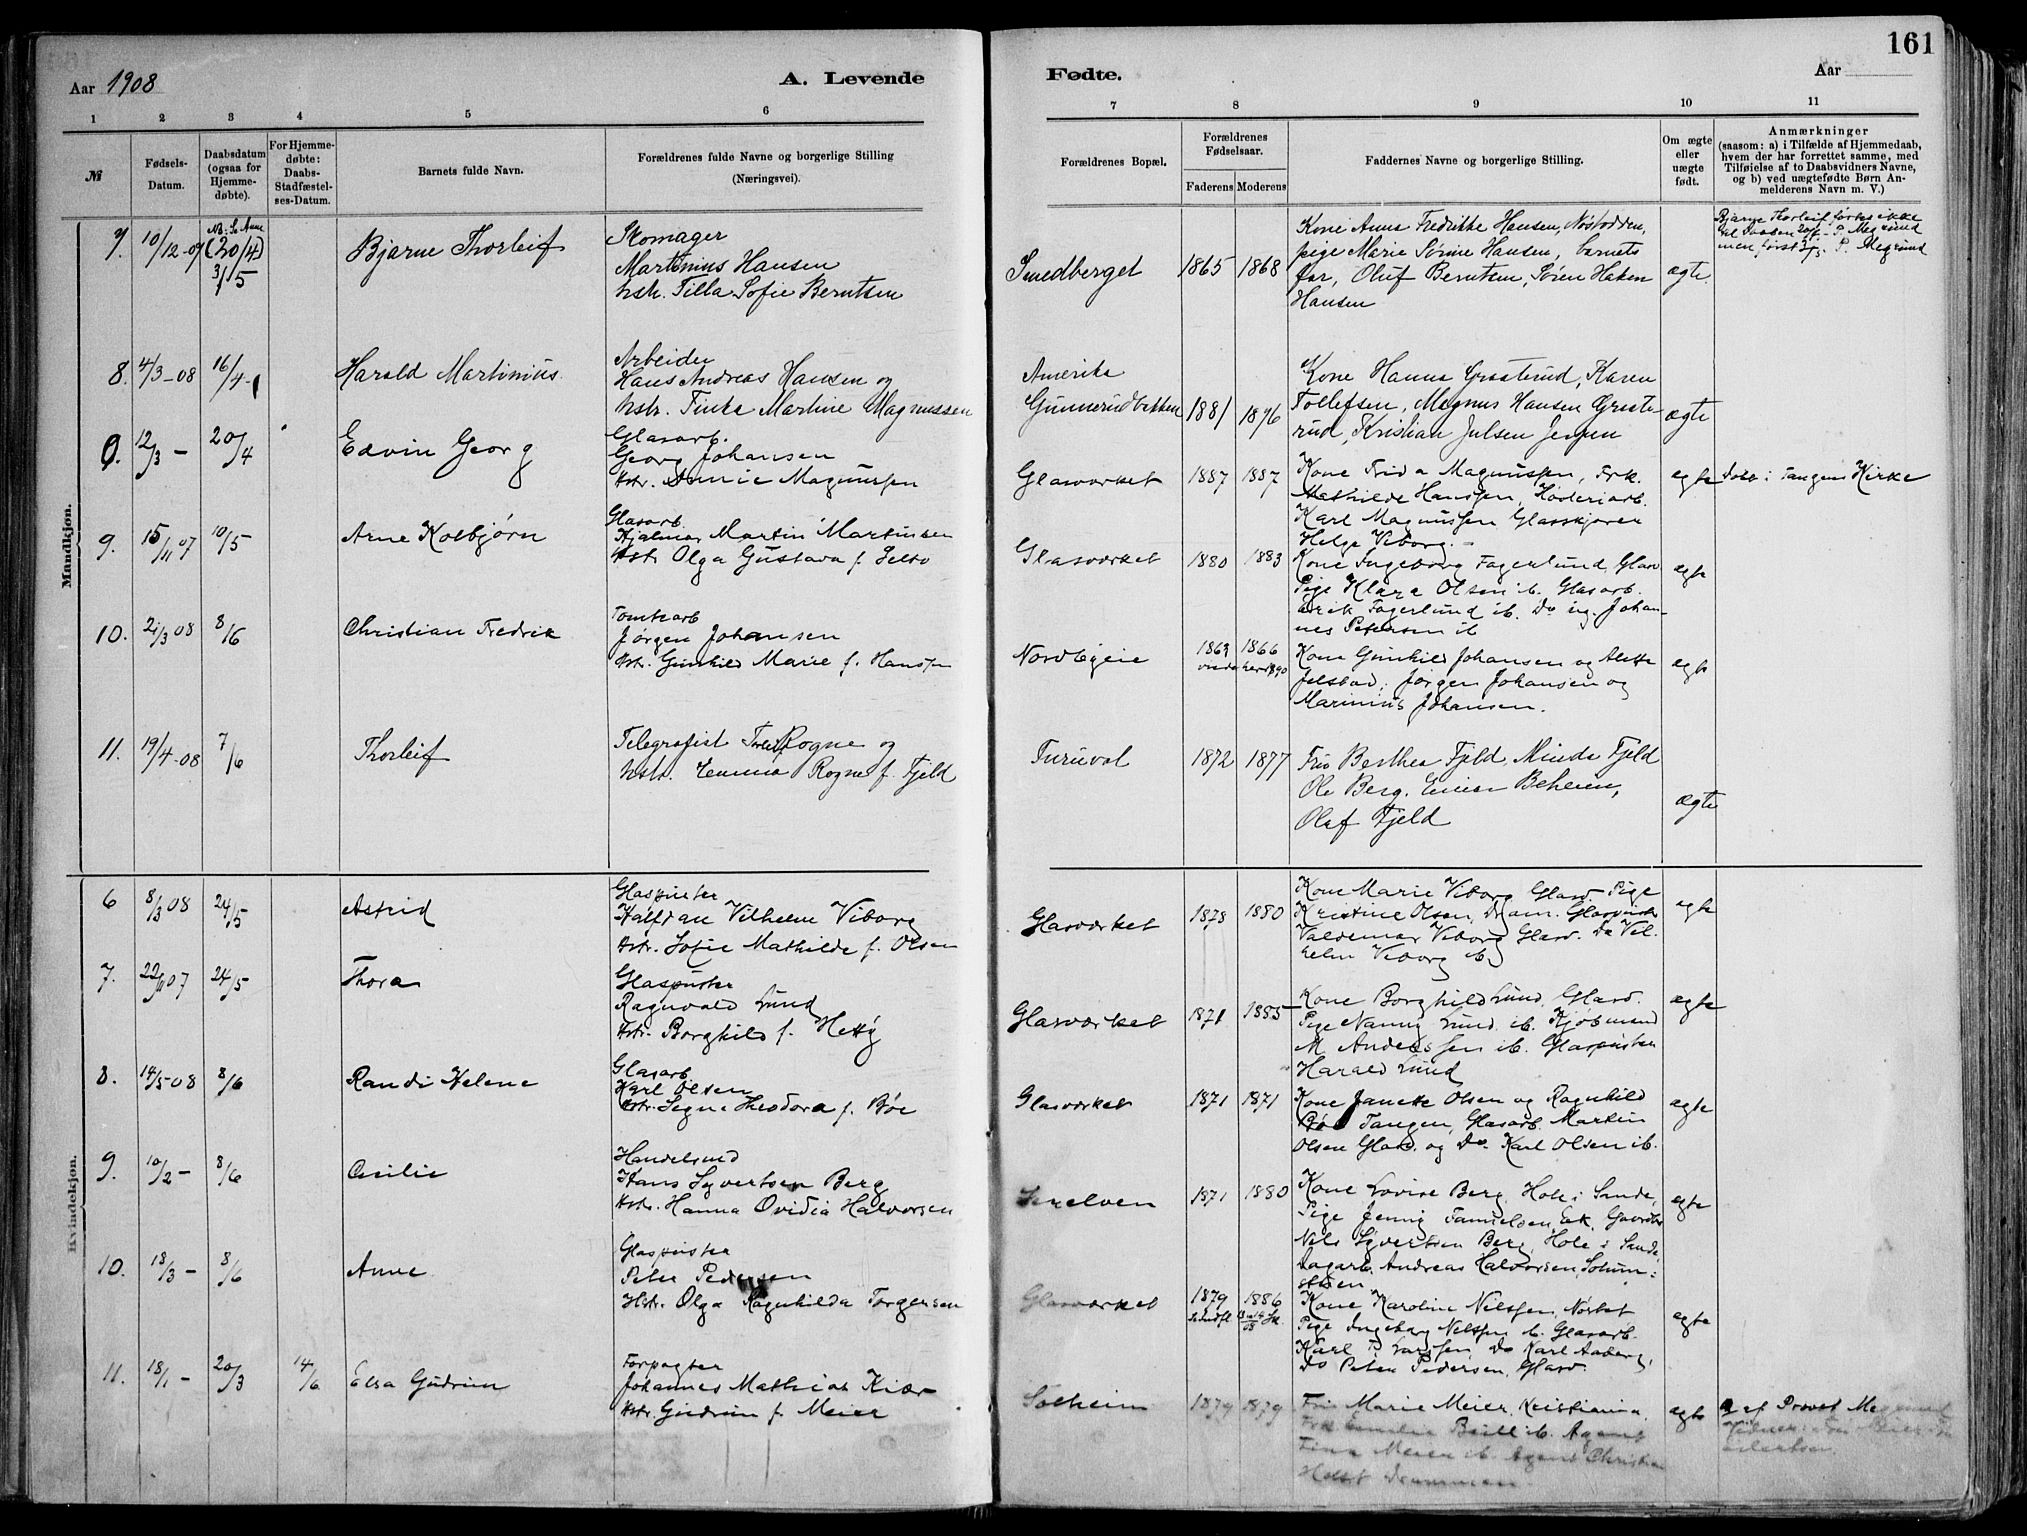 161
Aar 1908
A. Levende
Fødte.
Aar
1 2 3 4 5 6 7 8 9 10 11
№
Fødsels-
Datum.
Daabsdatum
(ogsaa for
Hjemme-
døbte).
For Hjemme-
døbte:
Daabs-
Stadfæstel-
ses-Datum.
Barnets fulde Navn.
Forældrenes fulde Navne og borgerlige Stilling
(Næringsvei).
Forældrenes Bopæl.
Forældrenes
Fødselsaar.
Faderens Moderens
Faddernes Navne og borgerlige Stilling.
Om ægte
eller
uægte
født.
Anmærkninger
(saasom: a) i Tilfælde af Hjemmedaab,
hvem der har forrettet samme, med
Tilføielse af to Daabsvidners Navne,
og b) ved uægtefødte Børn An-
melderens Navn m. V.)
Mandkjøn.
7. 10/12-07 (20/4) 31/5
Bjarne Thorleif
Skomager
Martinius Hansen
hstr. Tilla Sofie Berntsen
Smedberget
1865 1868
Kone Anna Fredrikke Hansen, Nøstodden,
pige Marie Sørine Hansen, barnets
far, Oluf Berntsen, Søren Haken
Hansen
ægte.
Bjarne Thorleif førtes ikke
til Daaben 20/4 P. Megrund
men først 31/5. P. Megrund
8. 4/3-08 16/4
Harald Martinius
Arbeider
Hans Andreas Hansen og
hstr. Tinka Martine Magnussen
Amerika
Gunnerudbakken
1881 1876
Kone Hanna Graaterud, Karen
Tollefsen, Magnus Hansen Graate-
rud, Kristian Julsen Jensen
ægte
9. 12/3 - 20/4
Edvin Georg
Glasarb.
Georg Johansen
Hstr. Annie Magnussen
Glasværket
1887 1887
Kone Frida Magnussen, Frk.
Mathilde Hanssen,
Karl Magnussen Glasskjærer
Helge Viborg.
egte
Døbt i Tangens Kirke
9. 15/11 07 10/5
Arne Kolbjørn
Glasarb.
Hjalmar Martin Martinsen
Hstr. Olga Gustava f.
Glasværket
1880 1883
Kone Ingeborg Fagerlund, Glasv
Pige Klara Olsen ib. Glasarb.
Erik Fagerlund ib. Do ug. Johan-
nes Petersen ib
egte
10. 21/3 08 8/6
Christian Fredrik
Tomtearb
Jørgen Johansen
Hstr. Gunhild Marie f. Hanssen
Nordbyeie
1863 1866
Kone Gunhild Johansen og Alette
Jelstad, Jørgen Johansen og
Marinius Johansen.
egte
11. 19/4-08 7/6
Thorleif
Telegrafist Rogne og
hstr. Emma Rogne f. Fjeld
Furuvol
1872 1877
Fru Berthea Fjeld, Minda Fjeld
Ole Berg. Einar Behrens,
Olaf Fjeld
ægte
Kvindekjøn.
6 8/3 08 24/5
Astrid
Glaspuster
Halfdan Vilhelm Viborg
Hstr. Sofie Mathilde f. Olsen
Glasværket
1878 1880
Kone Marie Viborg Glasv. Pige
Kristine Olsen, Dram. Glaspuster
Valdemar Viborg Glasv. Do Vil-
helm Viborg ib
egte
7. 22/11 07 24/5
Thora
Glaspuster
Ragnvald Lund
Hstr. Borghild f.
Glasværket
1871 1885
Kone Borghild Lund, Glasv.
Pige Nanny Lund ib. Kjøbmand
M Anderssen ib. Glaspuster
Harald Lund
egte
8. 14/5-08 8/6
Randi Helene
Glasarb.
Karl Olsen
Hstr. Signe Theodora f. Bøe
Glasværket
1871 1871
Kone Janette Olsen og Ragnhild
Bøe Tangen, Glasarb. Martin
Olsen Glasv. og Do Karl Olsen ib.
egte
9. 10/2 - 8/6
Cecilie
Handelsmd
Hans Syvertsen Berg
Hstr. Hanna Ovidia Halvorsen
Snelven
1871 1880
Kone Lovise Berg, Hole i Sande,
Pige Jenny Eek,
Nils Syvertsen Berg, Hole i Sande,
Dagarb. Andreas Halvorsen,
egte
10. 18/3 - 8/6
Anne
Glaspuster
Peter Pedersen
Hstr. Olga Ragnhilda Torgersen
Glasværket
1879 1886
Kone Karoline Nilssen,
Pige Ingeborg Nilssen ib. Glasarb.
Karl P. Larssen, Do Karl Aaberg,
Do Peter Pedersen, Glasv.
egte
11. 18/1 - 20/3 14/6
Elsa Gudrun
Forpagter
Johannes Mathias Kiær
Hstr. Gudrun f. Meier
Solheim
1879 1879
Fru Marie Meier, Kristiania,
Frk Emilie Bull ib. Agent
Meier ib. Agent Christian
Holst Drammen
egte
af Provst Megrund